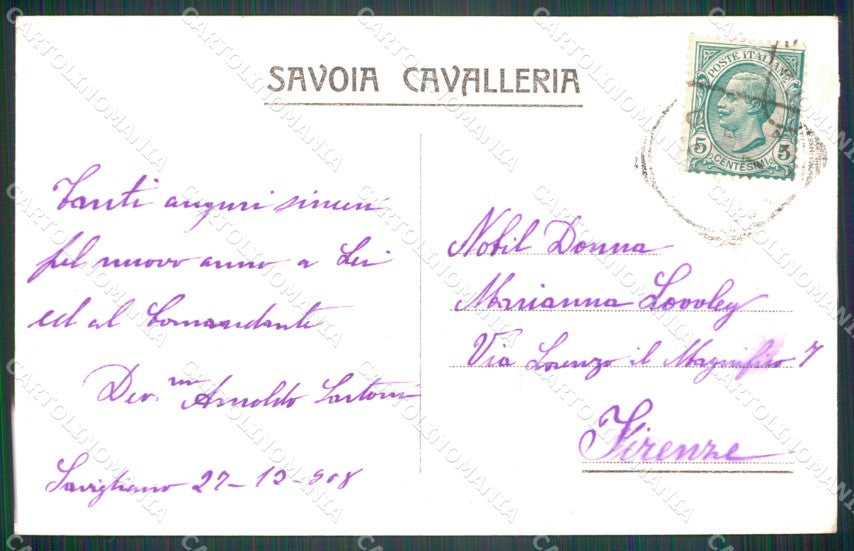 SAVOIA CAVALLERIA
POSTE ITALIANE
5 CENTESIMI 5
Tanti auguri sinceri
pel nuovo anno a Lei
ed al Comandante
Dev.mo Arnoldo Sartori
Savigliano 27-12-908
Nobil Donna
Marianna Lovoley
Via Lorenzo il Magnifico 7
Firenze
CARTOLINOMANIA